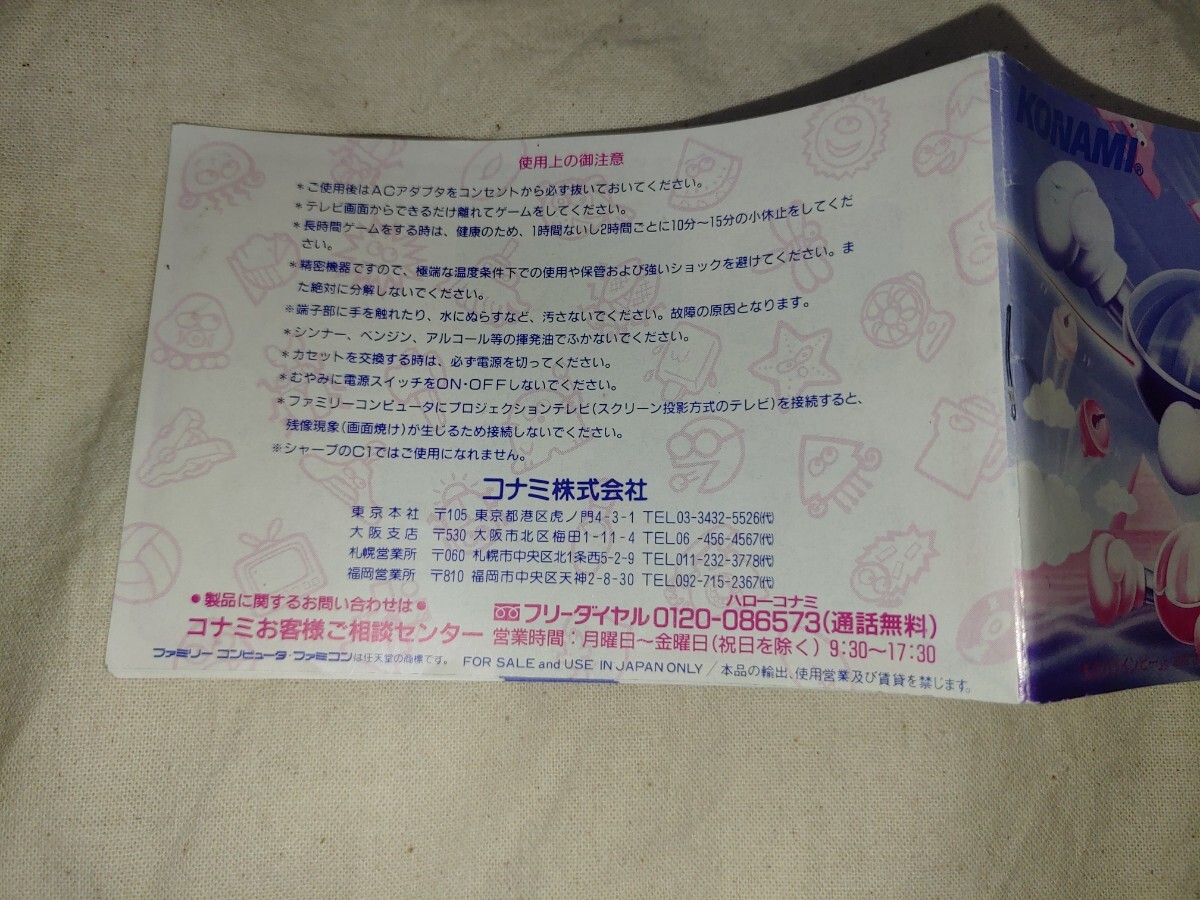 使用上の御注意
＊ご使用後はACアダプタをコンセントから必ず抜いておいてください。
＊テレビ画面からできるだけ離れてゲームをしてください。
＊長時間ゲームをする時は、健康のため、1時間ないし2時間ごとに10分～15分の小休止をしてくだ
さい。
＊精密機器ですので、極端な温度条件下での使用や保管および強いショックを避けてください。ま
た絶対に分解しないでください。
※端子部に手を触れたり、水にぬらすなど、汚さないでください。故障の原因となります。
＊シンナー、ベンジン、アルコール等の揮発油でふかないでください。
＊カセットを交換する時は、必ず電源を切ってください。
＊むやみに電源スイッチをON・OFFしないでください。
＊ファミリーコンピュータにプロジェクションテレビ(スクリーン投影方式のテレビ)を接続すると、
残像現象(画面焼け)が生じるため接続しないでください。
※シャープのC1ではご使用になれません。
コナミ株式会社
東京本社 〒105 東京都港区虎ノ門4-3-1 TEL03-3432-5526㈹
大阪支店 〒530 大阪市北区梅田1-11-4 TEL06-456-4567㈹
札幌営業所 〒060 札幌市中央区北1条西5-2-9 TEL011-232-3778㈹
福岡営業所 〒810 福岡市中央区天神2-8-30 TEL092-715-2367㈹
●製品に関するお問い合わせは●
コナミお客様ご相談センター
ハローコナミ
フリーダイヤル0120-086573(通話無料)
営業時間：月曜日～金曜日(祝日を除く) 9:30～17:30
ファミリーコンピュータ・ファミコンは任天堂の商標です。 FOR SALE and USE IN JAPAN ONLY／本品の輸出、使用営業及び賃貸を禁じます。
KONAMI®